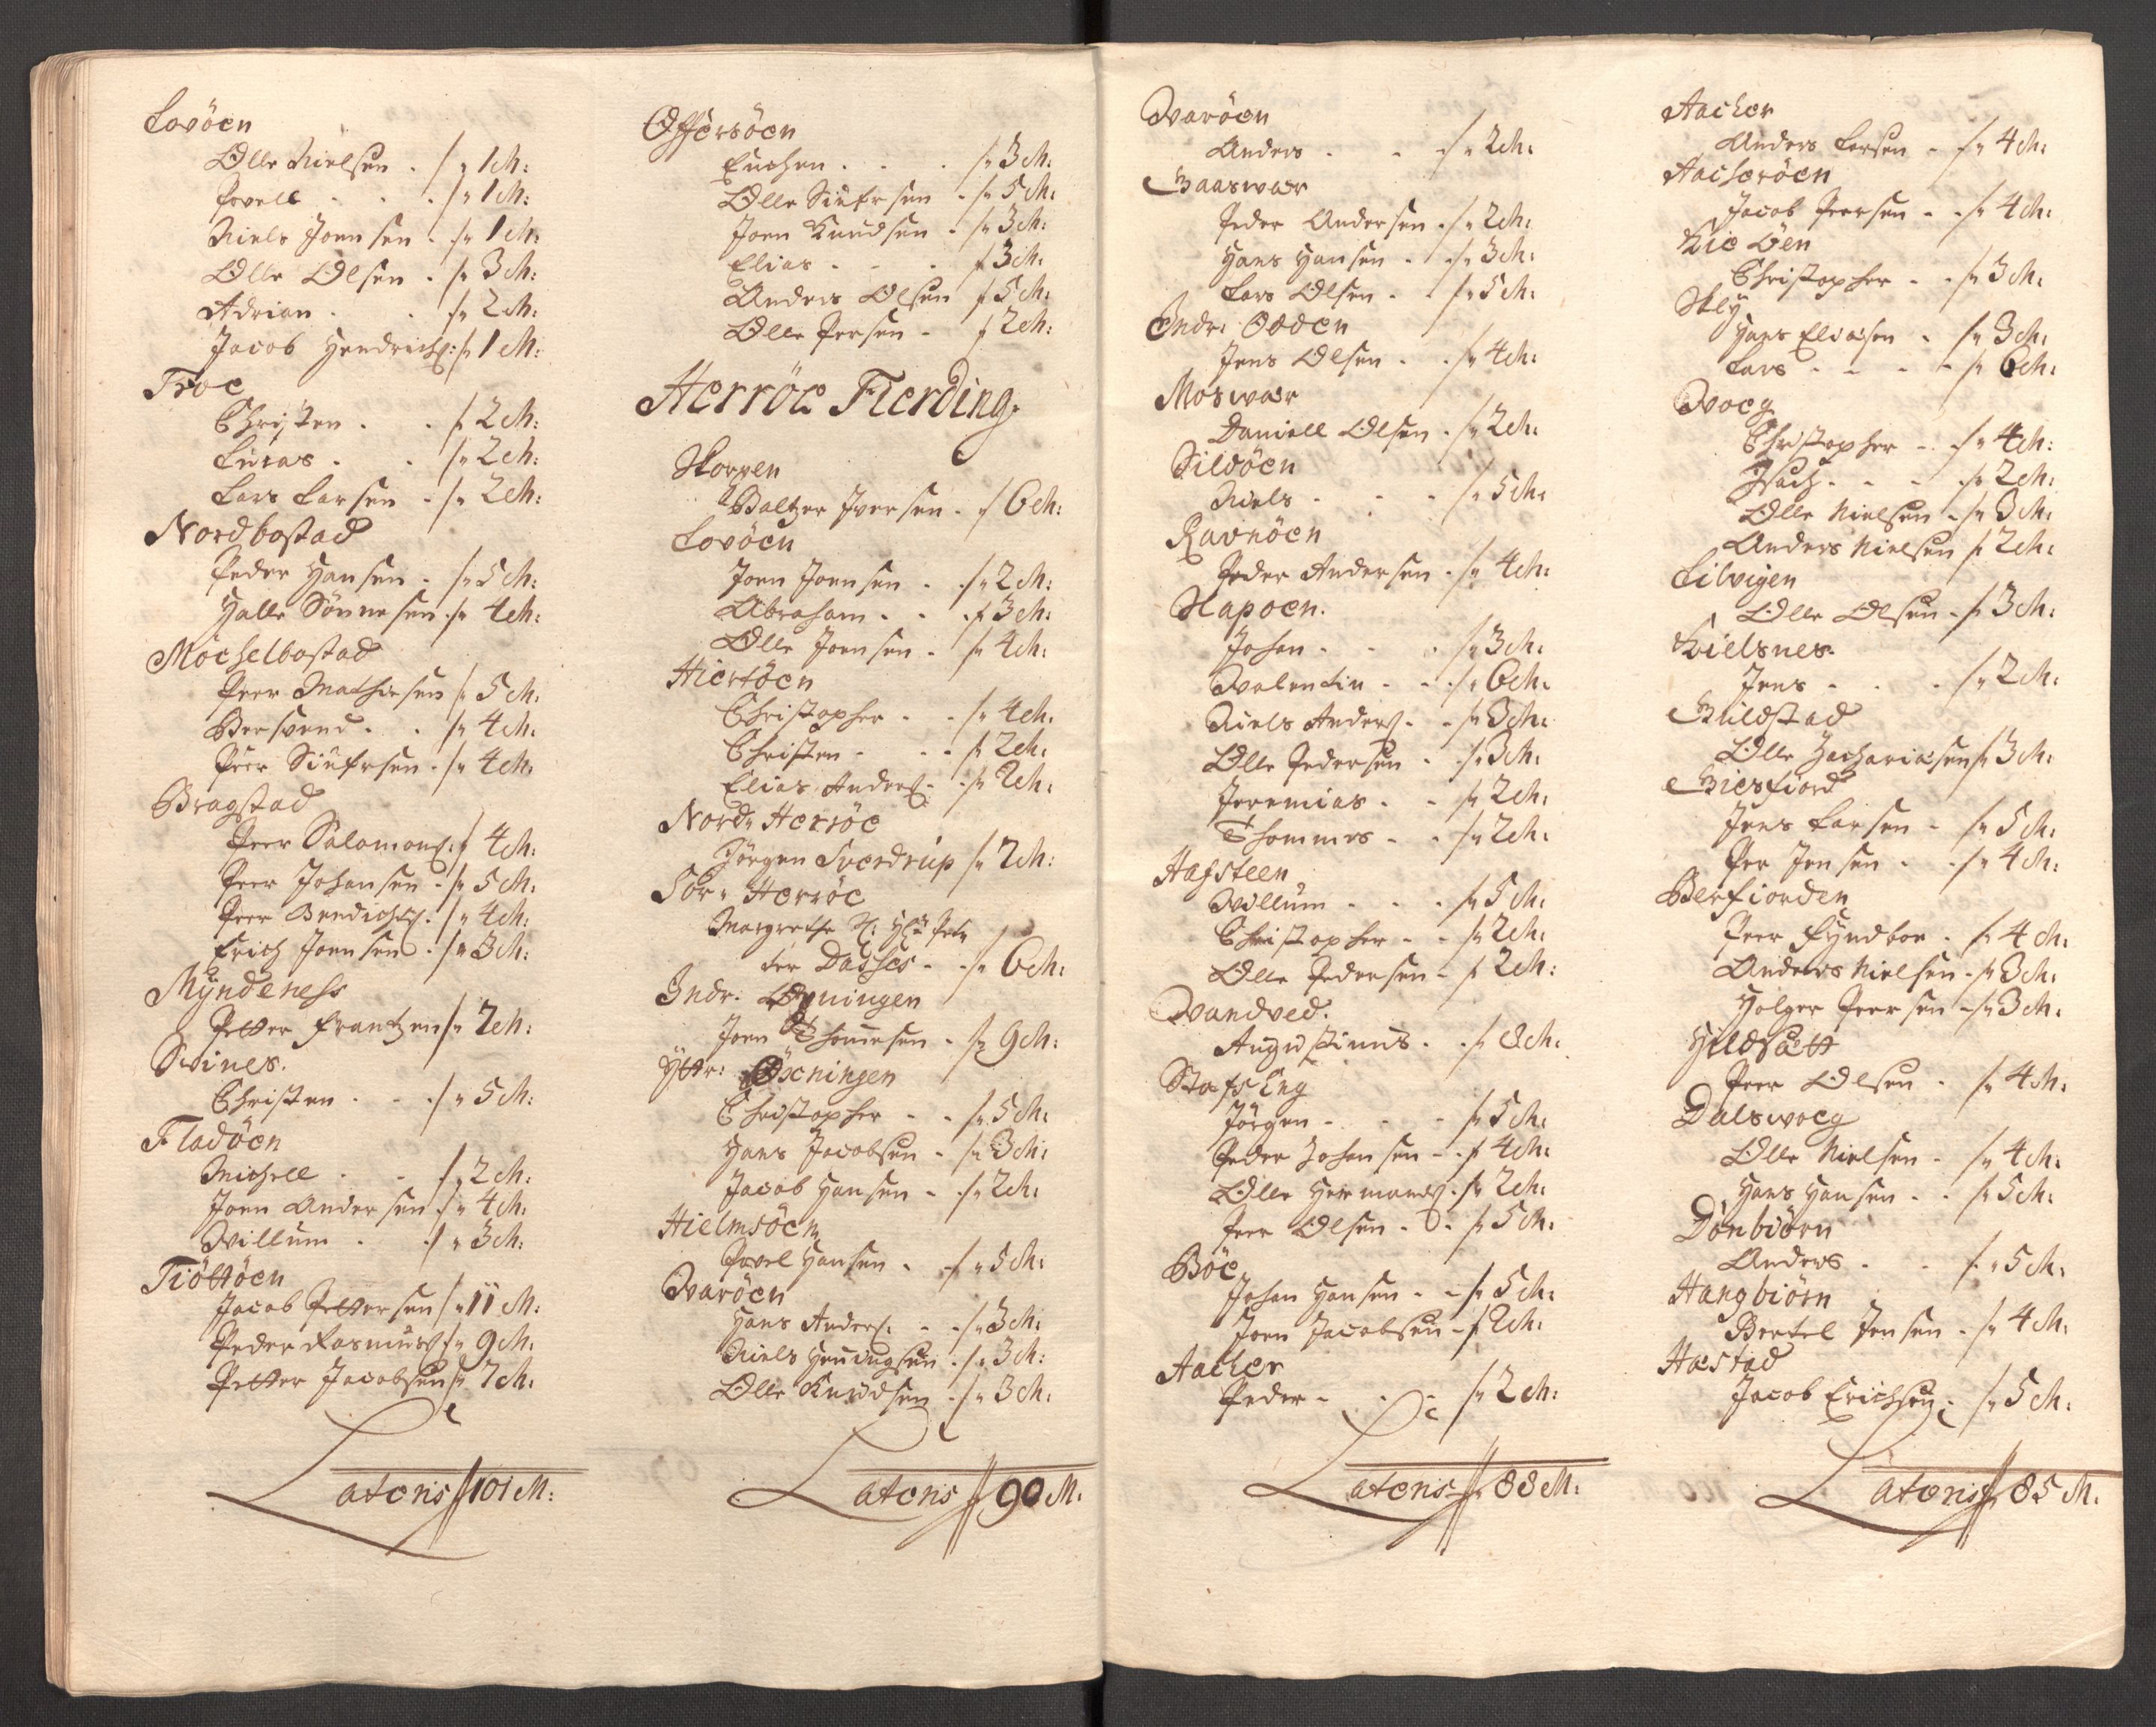 Lovöen
Olle Nielsen . /„ 1 M:
Povell . . . /„ 1 M:
Niels Joensen . /„ 1 M:
Olle Olsen . /„ 3 M:
Adrian . . /„ 2 M:
Jacob Hendrichs: /„ 1 M:
Troe
Christen . . /„ 2 M:
Lucas . . /„ 2 M:
Lars Larsen . /„ 2 M:
Nordbostad
Peder Hansen . /„ 5 M:
Halle Sönnesen . /„ 4 M:
Mochelbostad
Peer Mathisen /„ 5 M:
Bersvend . . /„ 4 M:
Peer Siufrsen . /„ 4 M:
Bragstad
Peer Salomons: /„ 4 M:
Peer Johansen . /„ 5 M:
Peer Bendichs. /„ 4 M:
Erich Joensen . /„ 3 M:
Myndeness
Petter Frantzen /„ 7 M:
Svines.
Christen . . /„ 5 M:
Fladöen
Michell . . /„ 2 M:
Joen Andersen . /„ 4 M:
Villum . . /„ 3 M:
Tiöttöen
Jacob Pettersen /„ 11 M:
Peder Rasmus /„ 9 M:
Petter Jacobsen /„ 7 M:
Lateris /„ 101 M:
Offersöen
Enchen . . . /„ 3 M:
Olle Siufrsen . /„ 5 M:
Joen Knudsen . /„ 3 M:
Elias . . . /„ 3 M:
Anders Olsen /„ 5 M:
Olle Persen . /„ 2 M:
Herröe Fierding.
Skorpen
Baltzer Iversen . /„ 6 M:
Lovöen
Joen Joensen . . /„ 2 M:
Abraham . . . /„ 3 M:
Olle Joensen . /„ 4 M:
Hiertöen
Christopher . . /„ 4 M:
Christen . . . /„ 2 M:
Elias Anders. . /„ 2 M:
Nord„ Herröe
Jörgen Sverdrup /„ 7 M:
Sör„ Herröe
Margrethe Sl: Hr: Pet„
ter Dasses . . /„ 6 M:
Indr. Öxningen
Joen Thomesen . /„ 9 M:
Yttr: Öxningen
Christopher . . /„ 5 M:
Hans Jacobsen . /„ 3 M:
Jacob Hansen . /„ 2 M:
Hielmsöen
Povel Hansen . /„ 5 M:
Qvaröen
Hans Anders. . . /„ 3 M:
Niels Henningsen . /„ 3 M:
Olle Knudsen . /„ 3 M:
Lateris /„ 90 M:
Qvaröen
Anders . . . /„ 2 M:
Gaaswær
Peder Andersen . /„ 2 M:
Hans Hansen . . /„ 3 M:
Lars Olsen . . /„ 5 M:
Indr: Odden
Jens Olsen . . /„ 4 M:
Moswær
Daniell Olsen . /„ 2 M:
Sildöen
Niels . . . /„ 5 M:
Ravnöen
Peder Andersen . /„ 4 M:
Slapoen.
Johan . . . /„ 3 M:
Valentin . . . /„ 6 M:
Niels Anders. . /„ 3 M:
Olle Pedersen . . /„ 3 M:
Jeremias . . /„ 2 M:
Thommes . . /„ 2 M:
Hafsteen
Villum . . . /„ 5 M:
Christopher . . /„ 2 M:
Olle Pedersen . /„ 2 M:
Vandved.
Augustinus . . /„ 8 M:
Stafs Eng
Jörgen . . . /„ 5 M:
Peder Johansen . . /„ 4 M:
Olle Hermands. /„ 2 M:
Peer Olsen . . /„ 5 M:
Böe
Johan Hansen . . /„ 5 M:
Joen Jacobsen . /„ 2 M:
Aacher
Peder . . . /„ 2 M:
Lateris /„ 88 M:
Aacher
Anders Larsen . /„ 4 M:
Aacheröen
Jacob Peersen . . /„ 4 M:
Kie Öen
Christopher . . /„ 3 M:
Skey
Hans Eliasen . /„ 3 M:
Lars . . . . /„ 6 M:
Voeg
Christopher . . /„ 4 M:
Isach . . . . /„ 2 M:
Olle Nielsen . /„ 3 M:
Anders Nielsen /„ 2 M:
Lilvigen
Olle Olsen . /„ 3 M:
Kielsnes.
Jens . . . /„ 2 M:
Buldstad
Olle Zachariasen /„ 3 M:
Biesfiord
Jens Larsen . /„ 5 M:
Per Jensen . . /„ 4 M:
Berfiorden
Peer Fyndboe . /„ 4 M:
Anders Nielsen . /„ 3 M:
Holger Peersen . /„ 3 M:
Hildsætt
Peer Olsen . /„ 4 M:
Dalswoeg
Olle Nielsen . /„ 4 M:
Hans Hansen . . /„ 5 M:
Dönbiörn
Anders . . /„ 5 M:
Hangbiörn
Bertel Jensen . /„ 4 M:
Hæstad
Jacob Erichsen . /„ 5 M:
Lateris /„ 85 M: